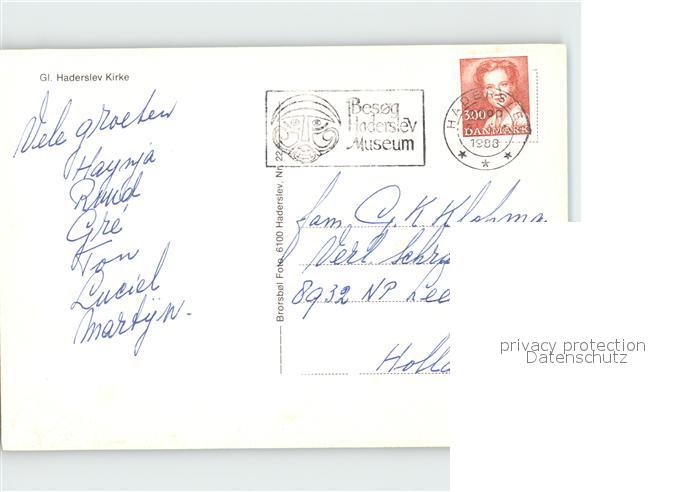 Gl. Haderslev Kirke
Vele groeten
Haynja
Ruud
Gré
Ton
Luciel
Martijn.
Brorsbøl Foto, 6100 Haderslev. Nr. 22
Besøg
Haderslev
Museum
HADERSLE
1988
300
DANMARK
fam. G. K. Klohma
Verl. Schra
8932 NP Lee
Holla
privacy protection
Datenschutz